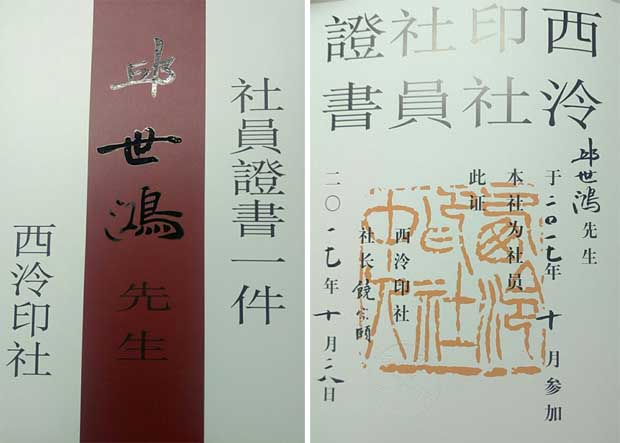 社員證書一件
邱世鴻先生
西泠印社
西泠
印社
社員
證書
邱世鴻先生
于二〇一七年十月参加
本社为社员
此证
西泠印社
社长饒宗頤
二〇一七年十月二八日